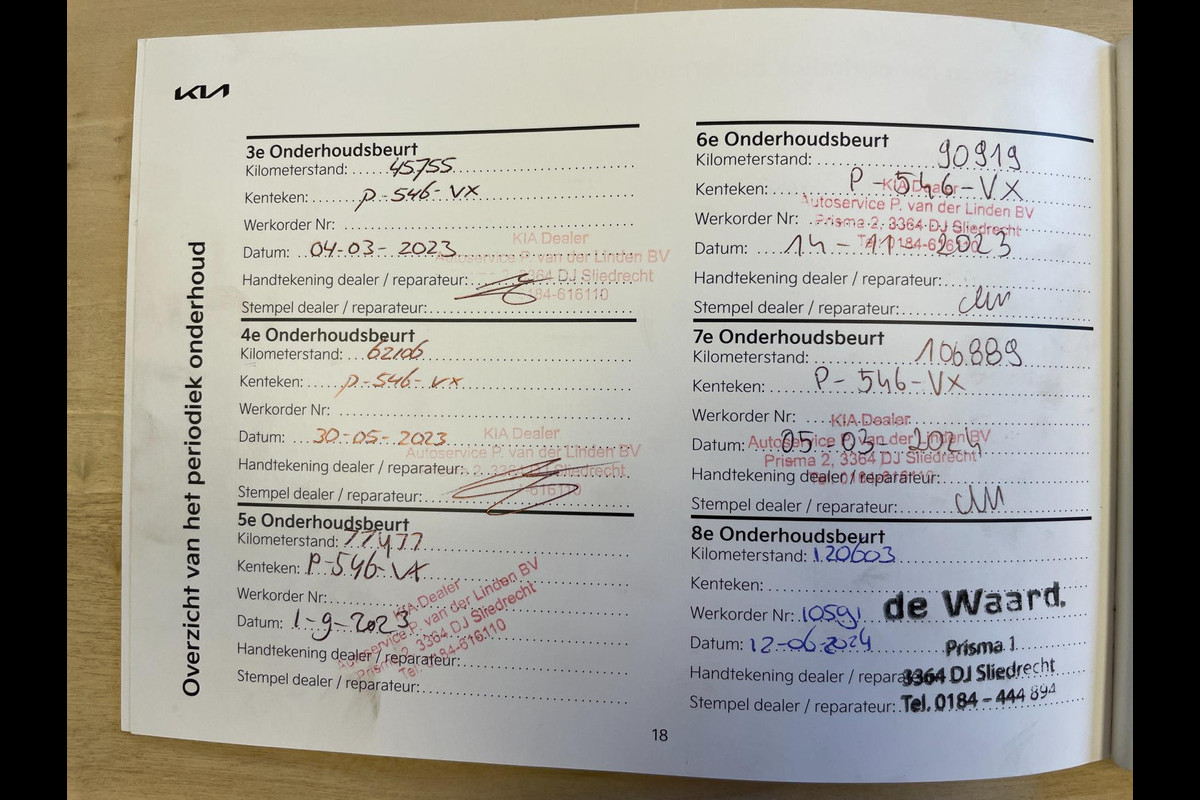 KIA
Overzicht van het periodiek onderhoud
3e Onderhoudsbeurt
Kilometerstand: 45755
Kenteken: P-546-VX
Werkorder Nr:
Datum: 04-03-2023
Handtekening dealer / reparateur:
Stempel dealer / reparateur:
KIA Dealer
Autoservice P. van der Linden BV
2, 3364 DJ Sliedrecht
0184-616110
4e Onderhoudsbeurt
Kilometerstand: 62106
Kenteken: P-546-VX
Werkorder Nr:
Datum: 30-05-2023
Handtekening dealer / reparateur:
Stempel dealer / reparateur:
KIA Dealer
Autoservice P. van der Linden BV
2, 3364 DJ Sliedrecht
616110
5e Onderhoudsbeurt
Kilometerstand: 77477
Kenteken: P-546-VX
Werkorder Nr:
Datum: 1-9-2023
Handtekening dealer / reparateur:
Stempel dealer / reparateur:
KIA Dealer
Autoservice P. van der Linden BV
Prisma 2, 3364 DJ Sliedrecht
Tel. 0184-616110
6e Onderhoudsbeurt
Kilometerstand: 90919
Kenteken: P-546-VX
Werkorder Nr:
Datum: 14-11-2023
Handtekening dealer / reparateur:
Stempel dealer / reparateur:
KIA Dealer
Autoservice P. van der Linden BV
Prisma 2, 3364 DJ Sliedrecht
7e Onderhoudsbeurt
Kilometerstand: 106889
Kenteken: P-546-VX
Werkorder Nr:
Datum: 05-03-2024
Handtekening dealer / reparateur:
Stempel dealer / reparateur:
KIA Dealer
Autoservice P. van der Linden BV
Prisma 2, 3364 DJ Sliedrecht
8e Onderhoudsbeurt
Kilometerstand: 120603
Kenteken:
Werkorder Nr: 10591
Datum: 12-06-2024
Handtekening dealer / reparateur:
Stempel dealer / reparateur:
de Waard.
Prisma 1
3364 DJ Sliedrecht
Tel. 0184 - 444 894
18